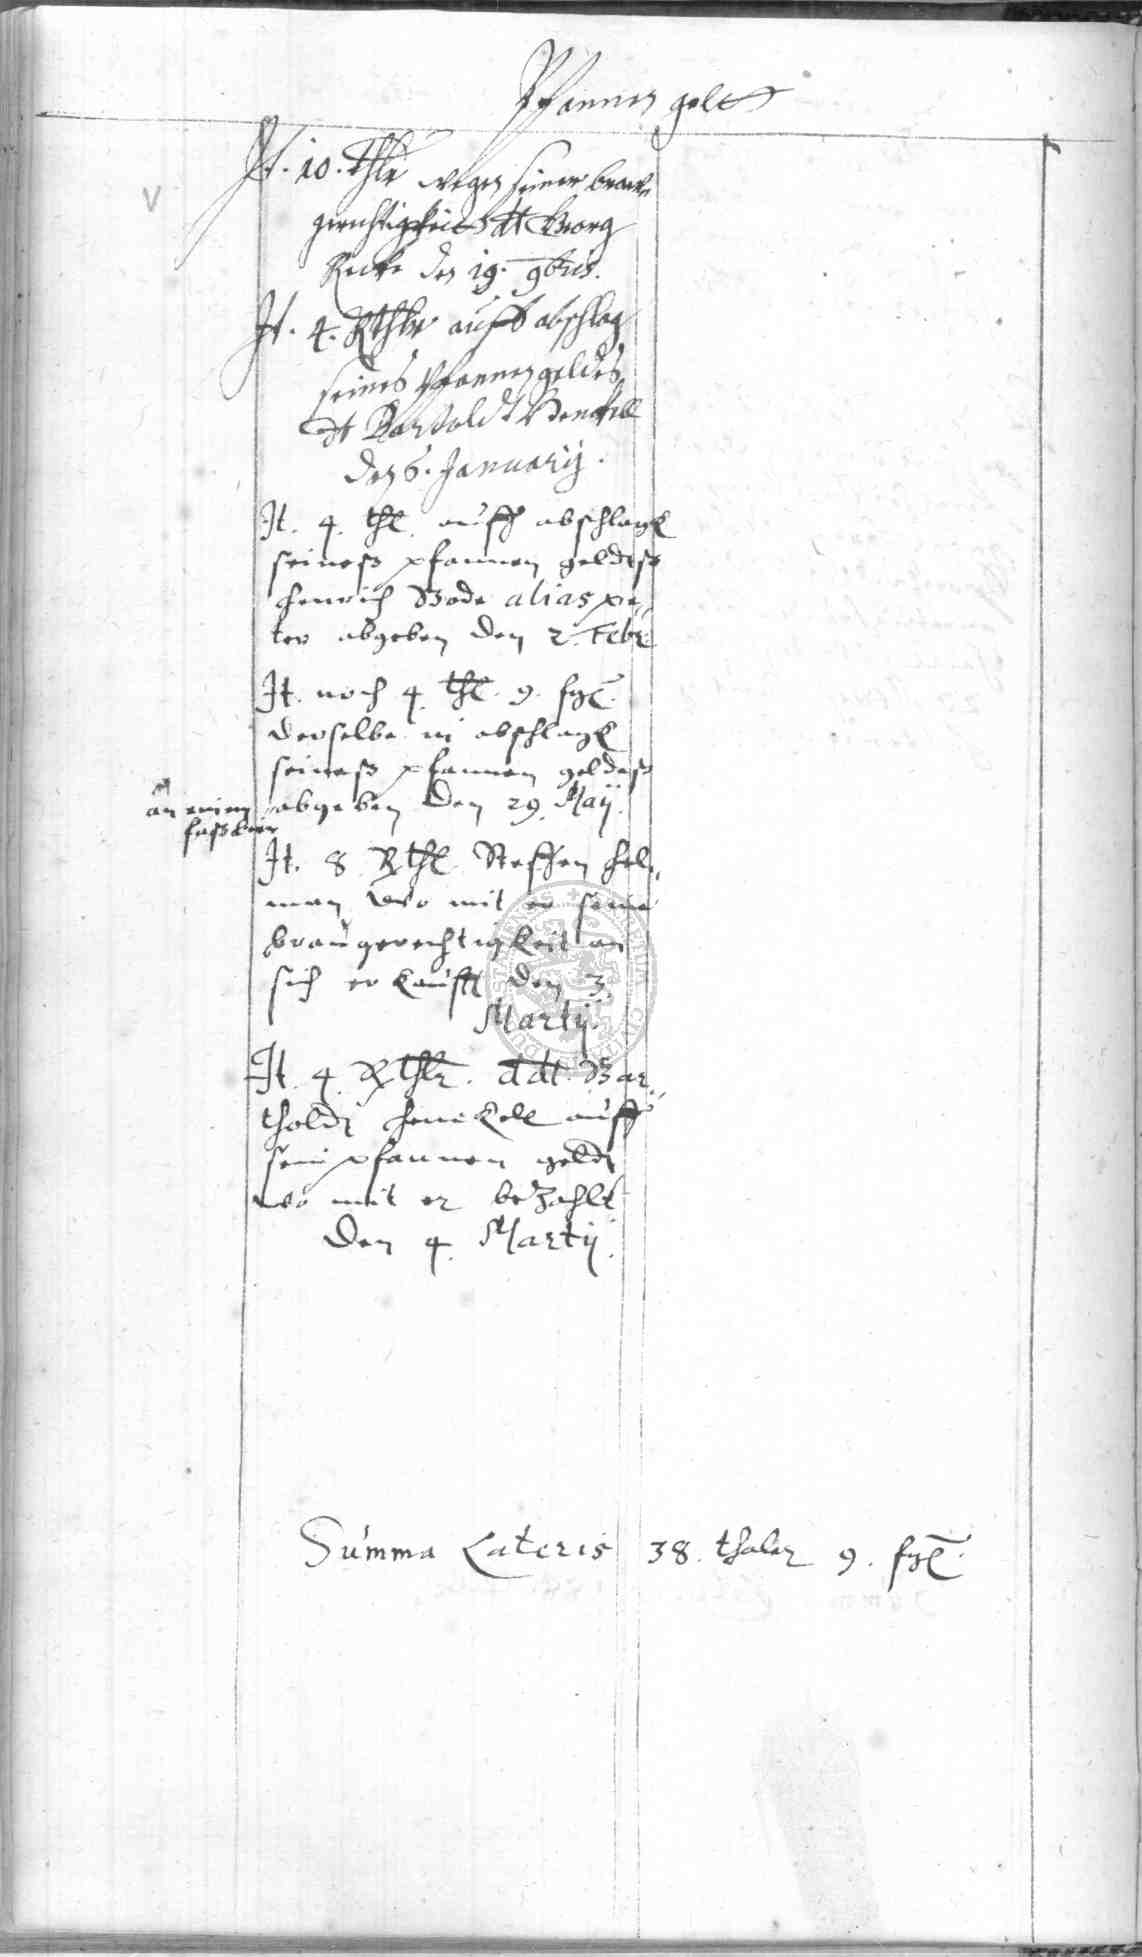 Pfannen gelt
It. 10. thlr wegen seiner braw
gerechtigkeit dt Georg
Recke den 19. 9bris.
It. 4. Rthlr auff abschlag
seines Pfannengeldes
dt Bartoldt Henckell
den 6. January.
It. 4. thl. auff abschlagk
seineß pfannen geldeß
Henrich Bode alias pe„
ter abgeben den 2. Febr
It. noch 4. thl. 9. fgl.
derselbe in abschlagk
seineß pfannen geldeß
an einem abgeben den 29. Maij.
faß bier
It. 8 Rthl Steffen Hel„
man wo mit er seine
braugerechtigkeit an
sich erkaufft den 3
Martij.
It. 4 Rthlr. ddt. Bar„
tholdt Henckell auff
sein pfannen geldt
wo mit er bezahlt
Den 4. Martij.
Summa Lateris 38. thaler 9. fgl.